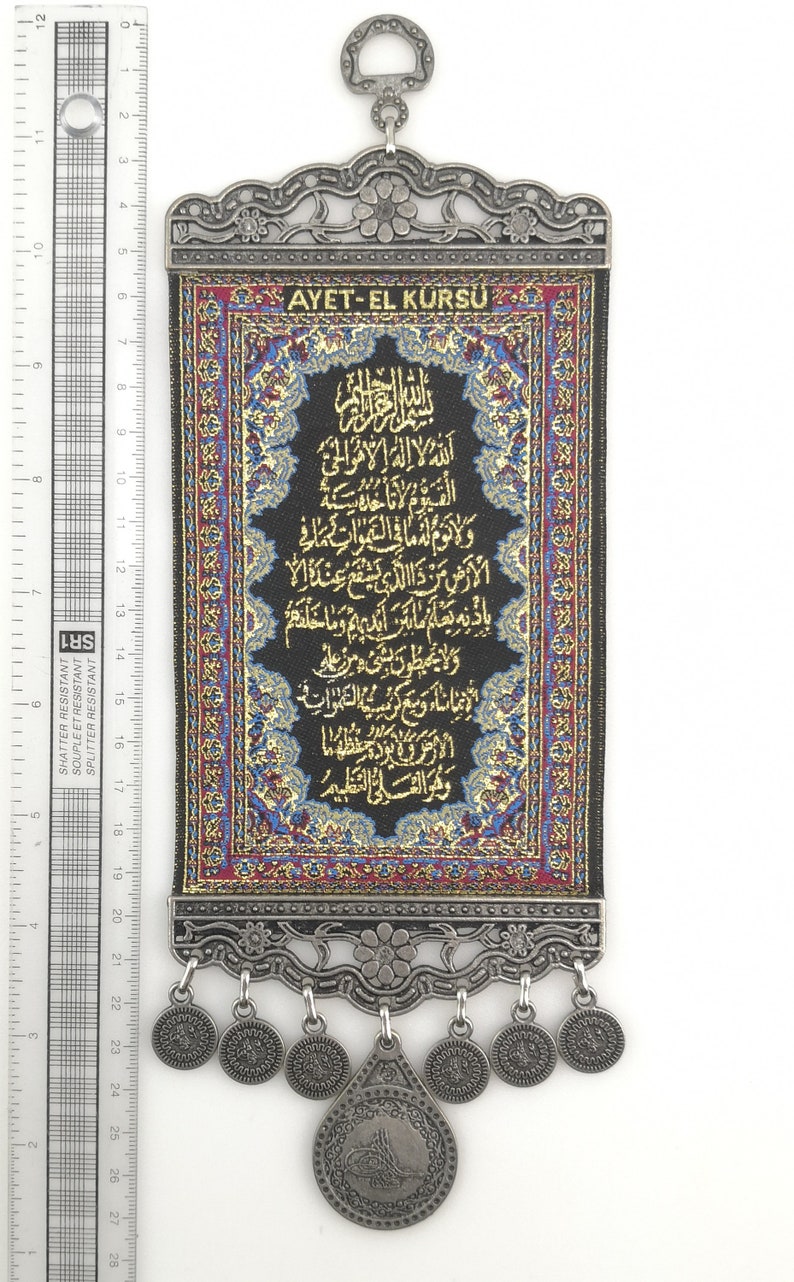 AYET-EL KÜRSÜ
بسم الله الرحمن الرحيم
الله لا اله الا هو الحى
القيوم لا تأخذه سنة
ولا نوم له ما فى السموات وما فى
الارض من ذا الذى يشفع عنده الا
باذنه يعلم ما بين ايديهم وما خلفهم
ولا يحيطون بشىء من علمه
الا بما شاء وسع كرسيه السموات و
الارض ولا يؤده حفظهما
وهو العلى العظيم
12
11
10
9
8
7
6
5
4
3
2
1
SR1
SHATTER RESISTANT
SOUPLE ET RESISTANT
SPLITTER RESISTENT
0
1
2
3
4
5
6
7
8
9
10
11
12
13
14
15
16
17
18
19
20
21
22
23
24
25
26
27
28